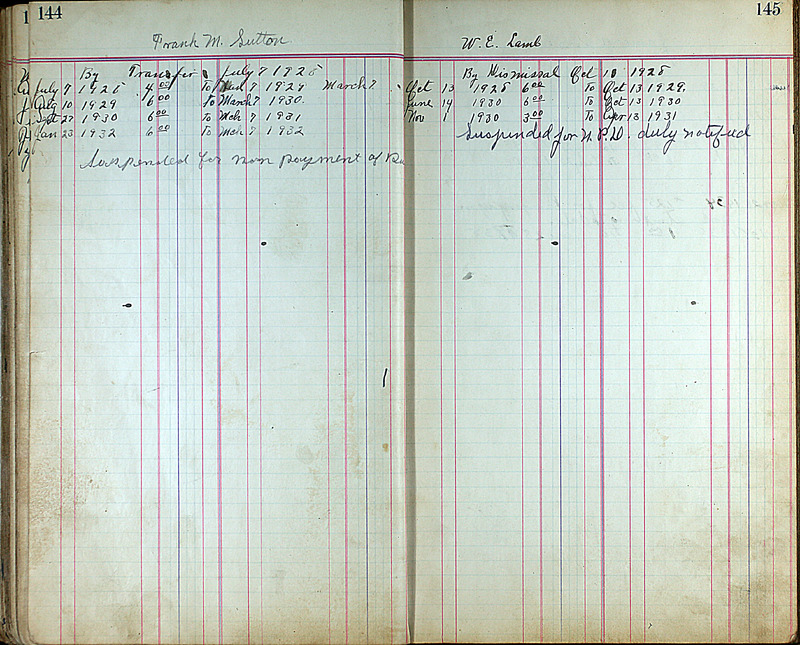 144
Frank M. Sutton
By Transfer July 7 1928
July 7 1928 4 00 To 7 1929 March 7
July 10 1929 6 00 To March 7 1930
Sept 27 1930 6 00 To Mch 7 1931
Jan 23 1932 6 00 To Mch 7 1932
Suspended for non payment of
145
W. E. Lamb
By Dismissal Oct 1928
Oct 13 1928 6 00 To Oct 13 1929
June 14 1930 6 00 To Oct 13 1930
Nov 1 1930 3 00 To Apr 13 1931
Suspended for N. P. D. duly notified